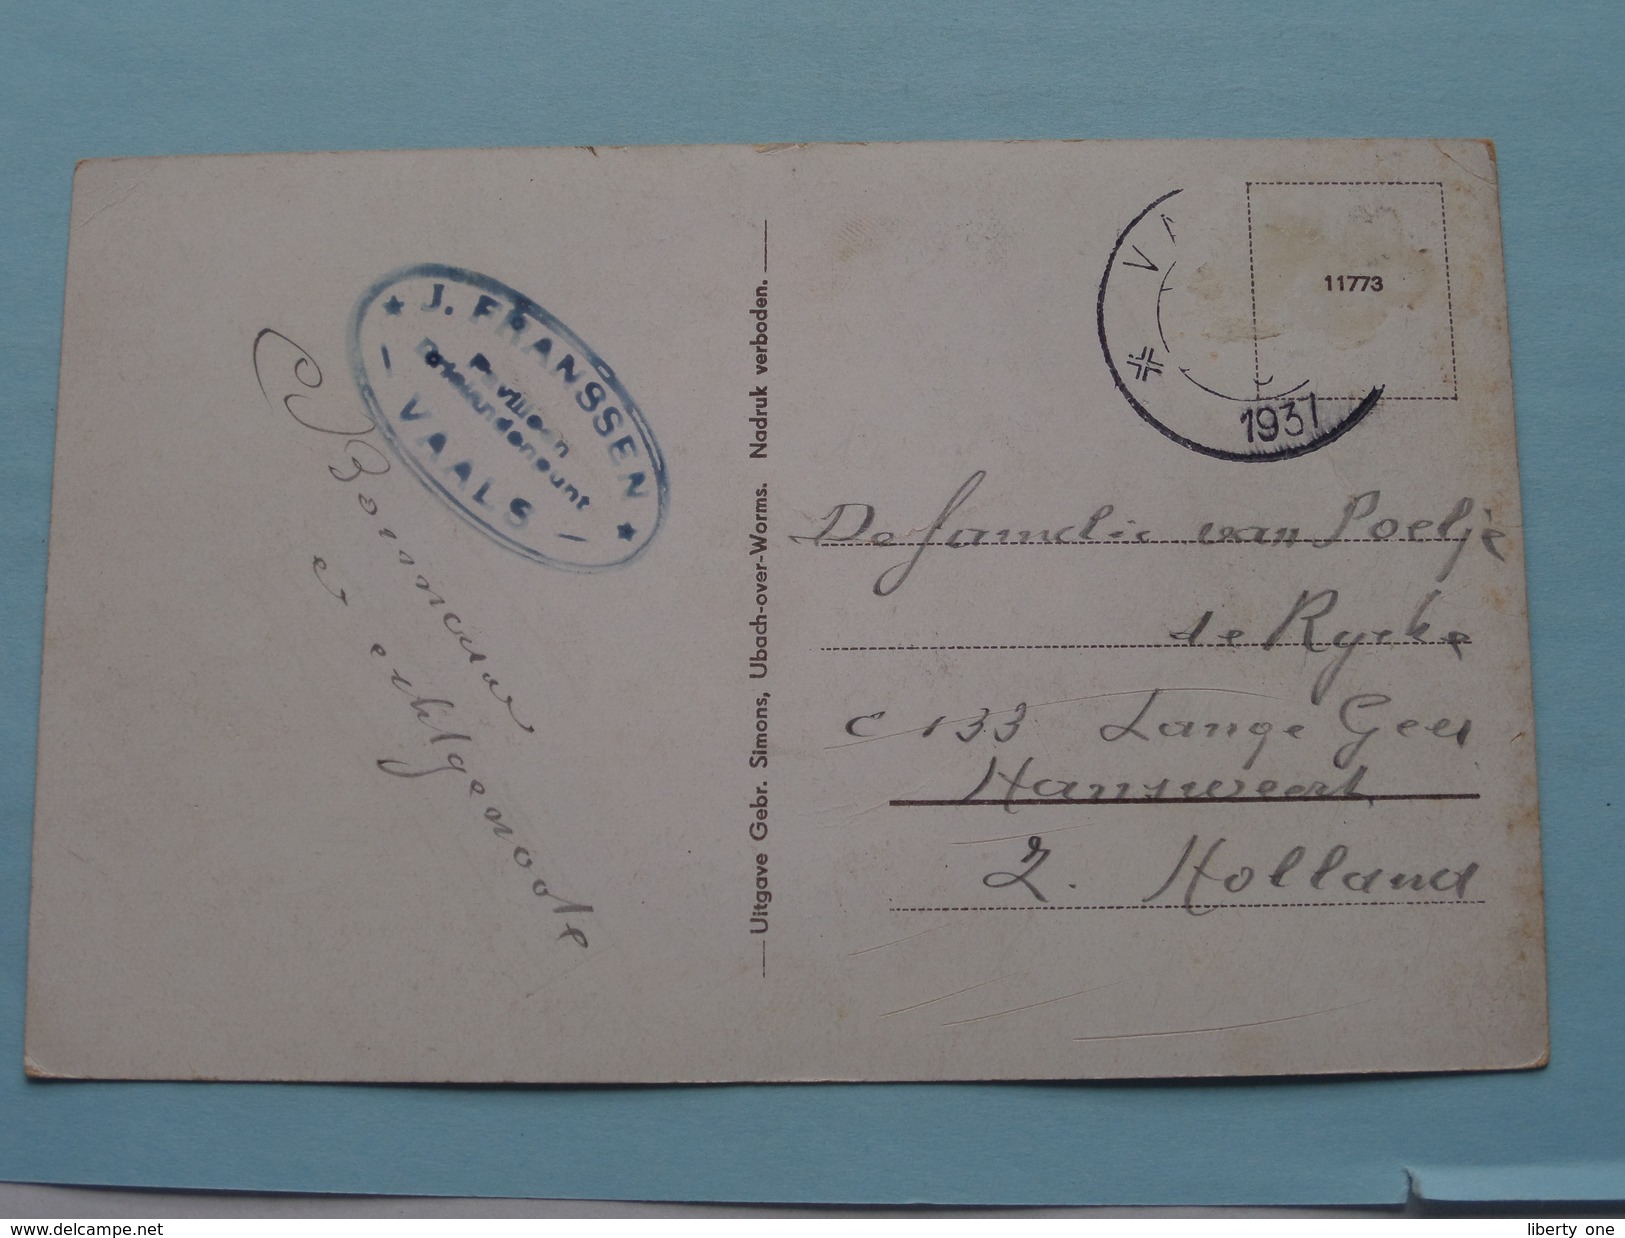 ★ J. FRANSSEN ★
Paviljoen
Driewandenpunt
- VAALS -
e
Uitgave Gebr. Simons, Ubach-over-Worms. Nadruk verboden.
VA
1937
11773
De familie van Poelje
de Rycke
C 133 Lange Geer
Hansweert
Z. Holland
www.delcampe.net
liberty one